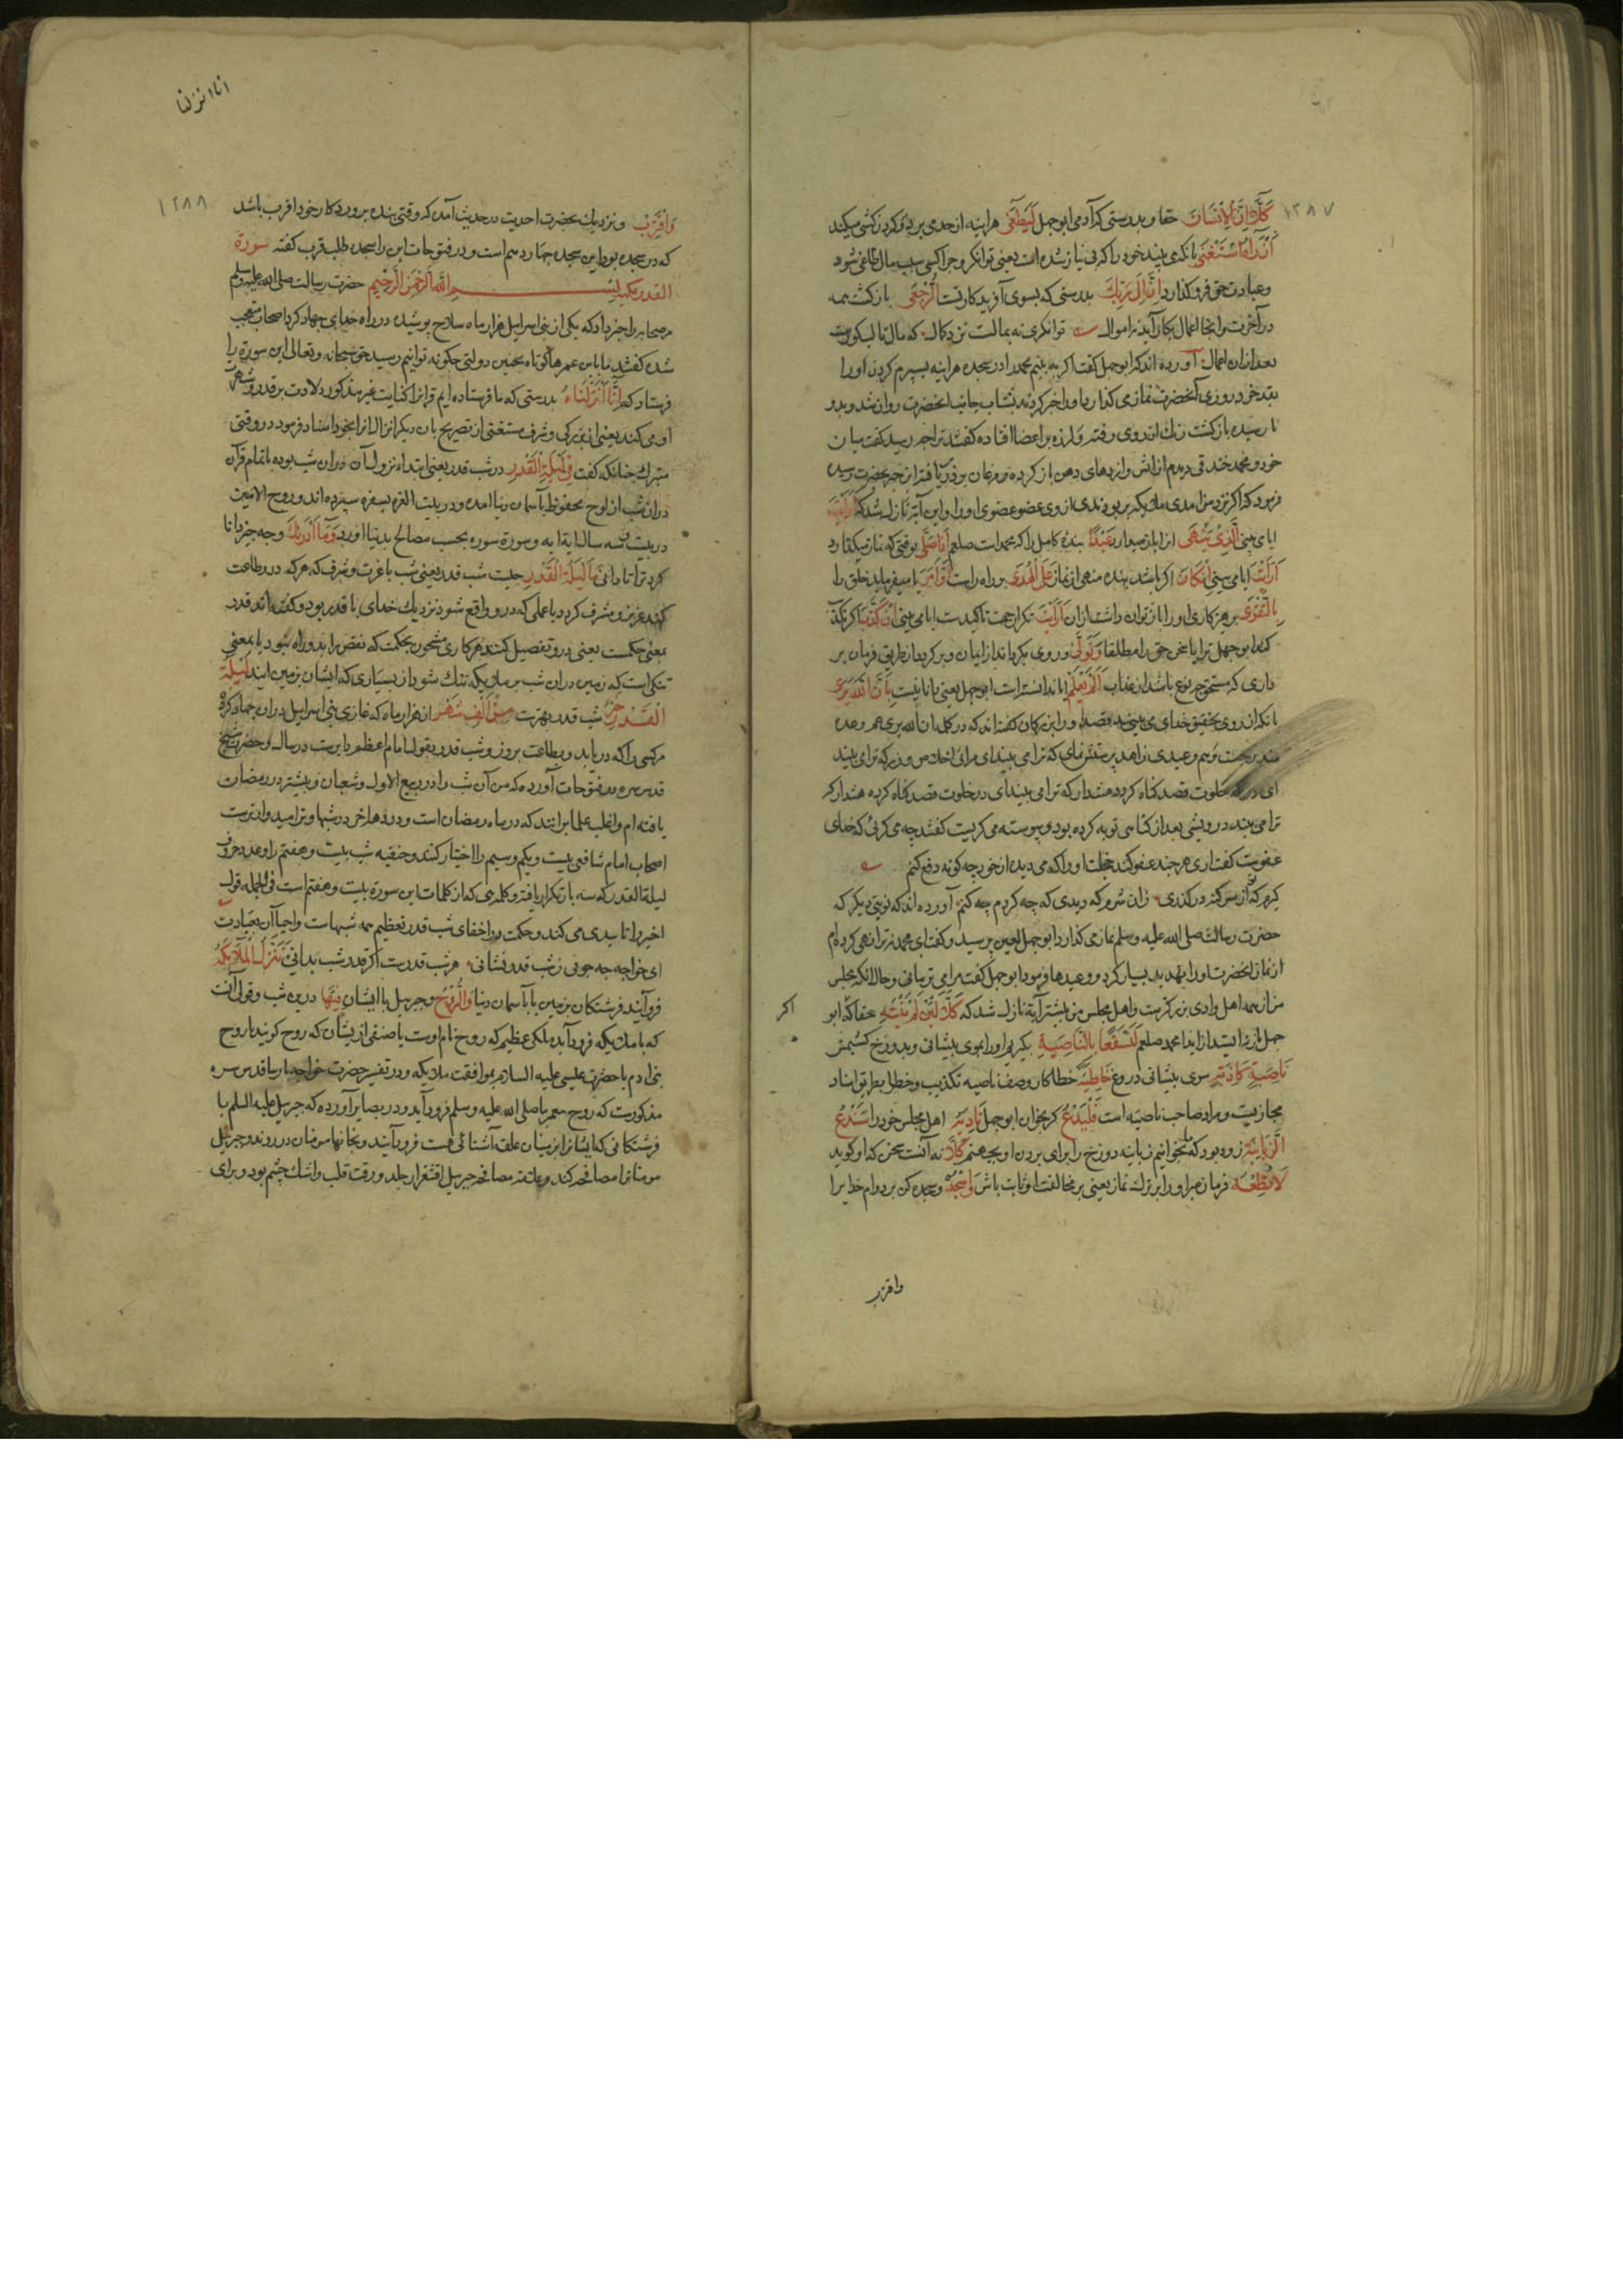 ١٢٨٧
كَلَّا إِنَّ الْإِنْسَانَ حقا و بدرستی که آدمی ابوجهل لَيَطْغَى هراینه از حد می برد و کردن کشی میکند
أَنْ رَآهُ اسْتَغْنَى بانکه می بیند خود را که بی نیاز شده است یعنی توانکر و چرا کسی سبب مال طاغی شود
و عبادت حق فرو کذارد إِنَّ إِلَى رَبِّكَ بدرستی که بسوی آفریدکار تست الرُّجْعَى بازکشت همه
در آخرت و انجا اعمال بکار آید نه اموال توانکری نه بمالست نزد کمال که مال تا لب کورست
بعد ازان اعمال آورده اند که ابوجهل کفت اکر به بینم محمد را در سجده هراینه بسپرم کردن او را
روزی آنحضرت نماز می کذارد او را خبر کردند بشتاب جانب انحضرت روان شد و بدو
نارسیده بازکشت رنک از روی رفته و لرزه بر اعضا افتاده کفتند ترا چه رسید کفت میان
خود و محمد خندقی دیدم از اتش و اژدهای دهن باز کرده و مرغان پر در پر یافته این خبر بحضرت رسید
فرمود که اکر نزد من امدی ملایکه بربودندی از وی عضو عضوی او را و این آیة نازل شد که أَرَأَيْتَ
ایا می بینی الَّذِي يَنْهَى انرا که باز میدارد عَبْدًا بنده کامل را که محمد است صلعم إِذَا صَلَّى وقتی که نماز میکذارد
أَرَأَيْتَ ایا می بینی إِنْ كَانَ اکر باشد بنده منهی از نماز عَلَى الْهُدَى بر راه راست أَوْ أَمَرَ یا میفرماید خلق را
بِالتَّقْوَى بپرهیزکاری او را باز توان داشت ازان أَرَأَيْتَ تکرار جهت تاکیدست ایا می بینی إِنْ كَذَّبَ اکر تکذیب
کند ابوجهل ترا یا سخن حق را مطلقا وَتَوَلَّى و روی بکرداند از ایمان و برکردد از طریق فرمان بر
داری که مستحق چه نوع باشد از عذاب أَلَمْ يَعْلَمْ ایا ندانسته است ابوجهل یعنی یا نا نیست بِأَنَّ اللَّهَ يَرَى
بانکه از روی تحقیق خدای می بیند قصد او را بزرکان کفته اند که در کلمه ان الله یری هم وعده
مندرجست و هم وعیدی زاهد پرستش نمای که ترا می بیند ای مرائی اخلاص ورز که ترا می بیند
ای در خلوت قصد کناه کرده هشدار که ترا می بیند ای در خلوت قصد کناه کرده هشدار که
ترا می بیند درویشی بعد از کناهی توبه کرده بود و پیوسته می کریست کفتند چه می کریی که خدای
عفوست کفت اری هر چند عفو کند خجلت او را که می دیده از خود چه کونه دفع کنم
کیرم که تو از سر کنه در کذری زان شرم که دیدی که چه کردم چه کنم آورده اند که نوبتی دیکر که
حضرت رسالت صلی الله علیه وسلم نماز می کذارد ابوجهل لعین پرسید و کفت ای محمد نه ترا نهی کرده ام
از نماز انحضرت او را تهدید بسیار کرد و وعیدها فرمود ابوجهل کفت مرا می ترسانی و حال انکه مجلس
من از همه اهل وادی بزرکترست و اهل مجلس من بیشتر آیة نازل شد که كَلَّا لَئِنْ لَمْ يَنْتَهِ حقا که اکر ابو
جهل باز نه ایستد از ایذا محمد صلعم لَنَسْفَعًا بِالنَّاصِيَةِ بکیریم او را بموی پیشانی و بدوزخ کشیمش
نَاصِيَةٍ كَاذِبَةٍ موی پیشانی دروغ خَاطِئَةٍ خطاکار وصف ناصیه تکذیب و خطا بطریق اسناد
مجازیست و مراد صاحب ناصیه است فَلْيَدْعُ کو بخوان ابوجهل نَادِيَهُ اهل مجلس خود را سَنَدْعُ
الزَّبَانِيَةَ زود بود که بخوانیم زبانیه دوزخ را برای بردن او بجهنم كَلَّا نه آنست سخن که او کوید
لَا تُطِعْهُ فرمان مبر او را بر ترک نماز یعنی بر مخالفت او ثابت باش وَاسْجُدْ و سجده کن بر دوام خدایرا
اکر
واقترب
انا انزلنا
١٢٨٨
وَاقْتَرِبْ و نزدیک بحضرت احدیت در حدیث آمده که وقتی بنده بپروردکار خود اقرب باشد
که در سجده بود این سجده چهاردهم است و در فتوحات این را سجده طلب قرب کفته سورة
القدر مکیه بِسْمِ اللَّهِ الرَّحْمَنِ الرَّحِيمِ حضرت رسالت صلی الله علیه وسلم
مر صحابه را خبر داد که یکی از بنی اسرایل هزار ماه سلاح پوشیده در راه خدای جهاد کرد اصحاب متعجب
شده کفتند ما باین عمرهای کوتاه بچنین دولتی چکونه توانیم رسید حق سبحانه و تعالی این سوره را
فرستاد که إِنَّا أَنْزَلْنَاهُ بدرستی که ما فرستاده ایم قرانرا کنایت غیر مذکور دلادت بر قدر و شهرت
او می کند یعنی از بزرکی و شرف مستغنی از تصریح بان دیکر انزال انرا بخود اسناد فرمود در وقتی
متبرک چنانکه کفت فِي لَيْلَةِ الْقَدْرِ در شب قدر یعنی ابتداء نزول آن دران شب بوده یا تمام قرآن
دران شب از لوح محفوظ بآسمان دنیا آمده و در بیت العزه بسفره سپرده اند و روح الامین
در بیست و سه سال ایة ایه و سورة سوره بحسب مصالح بدنیا اورد وَمَا أَدْرَاكَ و چه چیز دانا
کرد ترا تا دانی مَا لَيْلَةُ الْقَدْرِ چیست شب قدر یعنی شب با عزت و شرف که هر که درو طاعت
کند عزیز و مشرف کردد یا عملی که درو واقع شود نزدیک خدای با قدر بود و کفته اند قدر
بمعنی حکمست یعنی درو تفصیل کنند هر کاری مشحون بحکمت که نقض را بدو راه نبود یا بمعنی
تنکی است که زمین دران شب بر ملایکه تنک شود از بسیاری که ایشان بزمین ایند لَيْلَةُ
الْقَدْرِ خَيْرٌ شب قدر بهترست مِنْ أَلْفِ شَهْرٍ از هزار ماه که غازی بنی اسرایل دران جهاد کرد
هر کسی را که دریابد و بطاعت بروز و شب قدر بقول امام اعظم دایرست در سال و حضرت شیخ
قدس سره در فتوحات آورده که من آن شب را در ربیع الاول و شعبان و بیشتر در رمضان
یافته ام و اغلب علما برانند که در ماه رمضان است و در دهه اخر در شبها وتر امیدوارترست
اصحاب امام شافعی بیست و یکم و سیم را اختیار کنند و حنفیه شب بیست و هفتم را و عدد حروف
لیلة القدر که سه بار تکرار یافته و کلمه هی که از کلمات این سورة بیست و هفتم است فی الجمله قول
اخیر را تاییدی می کند و حکمت در اخفای شب قدر تعظیم همه شبهاست و احیا آن بعبادت
ای خواجه چه جویی ز شب قدر نشانی هر شب قدرست اکر قدر شب بدانی تَنَزَّلُ الْمَلَائِكَةُ
فرو آیند فرشتکان بزمین یا بآسمان دنیا وَالرُّوحُ و جبریل با ایشان فِيهَا درین شب و قولی آنست
که با ملایکه فرود آید ملکی عظیم که روح نام اوست یا صنفی از یشان که روح کویند یا روح
بنی ادم یا حضرت عیسی علیه السلام بموافقت ملایکه و در تفسیر حضرت خواجه پارسا قدس سره
مذکورست که روح پیغمبر ما صلی الله علیه وسلم فرود آید و در بصایر آورده که جبریل علیه السلم با
فرشتکانی که ایشانرا بزمینیان علقه آشنائی هست فرود آیند و بخانها مومنان در روند و جبریل
مومنانرا مصافحه کند و علامت مصافحه جبریل اقشعرار جلد و رقت قلب و اشک چشم بود و برای